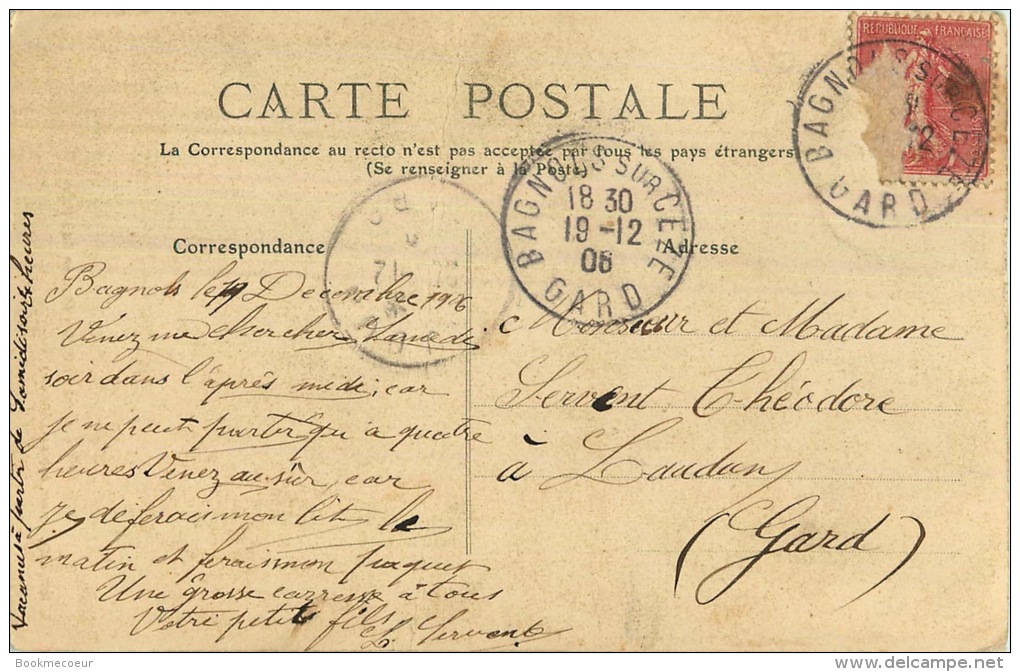 RÉPUBLIQUE FRANÇAISE
BAGNOLS SUR CEZE
12
GARD
CARTE POSTALE
La Correspondance au recto n'est pas acceptée par tous les pays étrangers
(Se renseigner à la Poste)
BAGNOLS SUR CEZE
18 30
19 -12
06
GARD
12
Correspondance
Adresse
Bagnols le 19 Décembre 1906
Venez me chercher Samedi
soir dans l'après midi, car
je ne peut partir qu'a quatre
heures Venez au sûr, car
je deferais mon lit le
matin et ferais mon paquet
Une Grosse carresse à tous
Votre petit fils
L. Servent
Vacances à partir de Samedi soir 4 heures
Monsieur et Madame
Servent Théodore
à Laudun
(Gard)
Bookmecoeur
delcampe.net